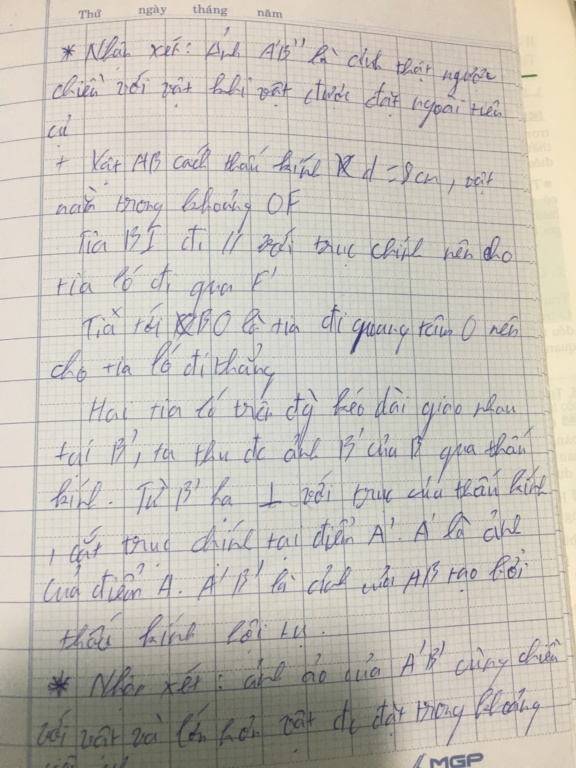 Thứ ngày tháng năm
* Nhận xét: Ảnh A'B'' là ảnh thật ngược
chiều với vật khi vật được đặt ngoài tiêu
cự
+ Vật AB cách thấu kính d = 8cm, vật
nằm trong khoảng OF
Tia BI đi // với trục chính nên cho
tia ló đi qua F'
Tia tới BO là tia đi quang tâm O nên
cho tia ló đi thẳng
Hai tia ló trên đg kéo dài giao nhau
tại B', ta thu đc ảnh B' của B qua thấu
kính. Từ B' hạ ⊥ với trục của thấu kính
, cắt trục chính tại điểm A'. A' là ảnh
của điểm A. A'B' là ảnh của AB tạo bởi
thấu kính hội tụ.
* Nhận xét: ảnh ảo của A'B' cùng chiều
với vật và lớn hơn vật đc đặt trong khoảng
MGP